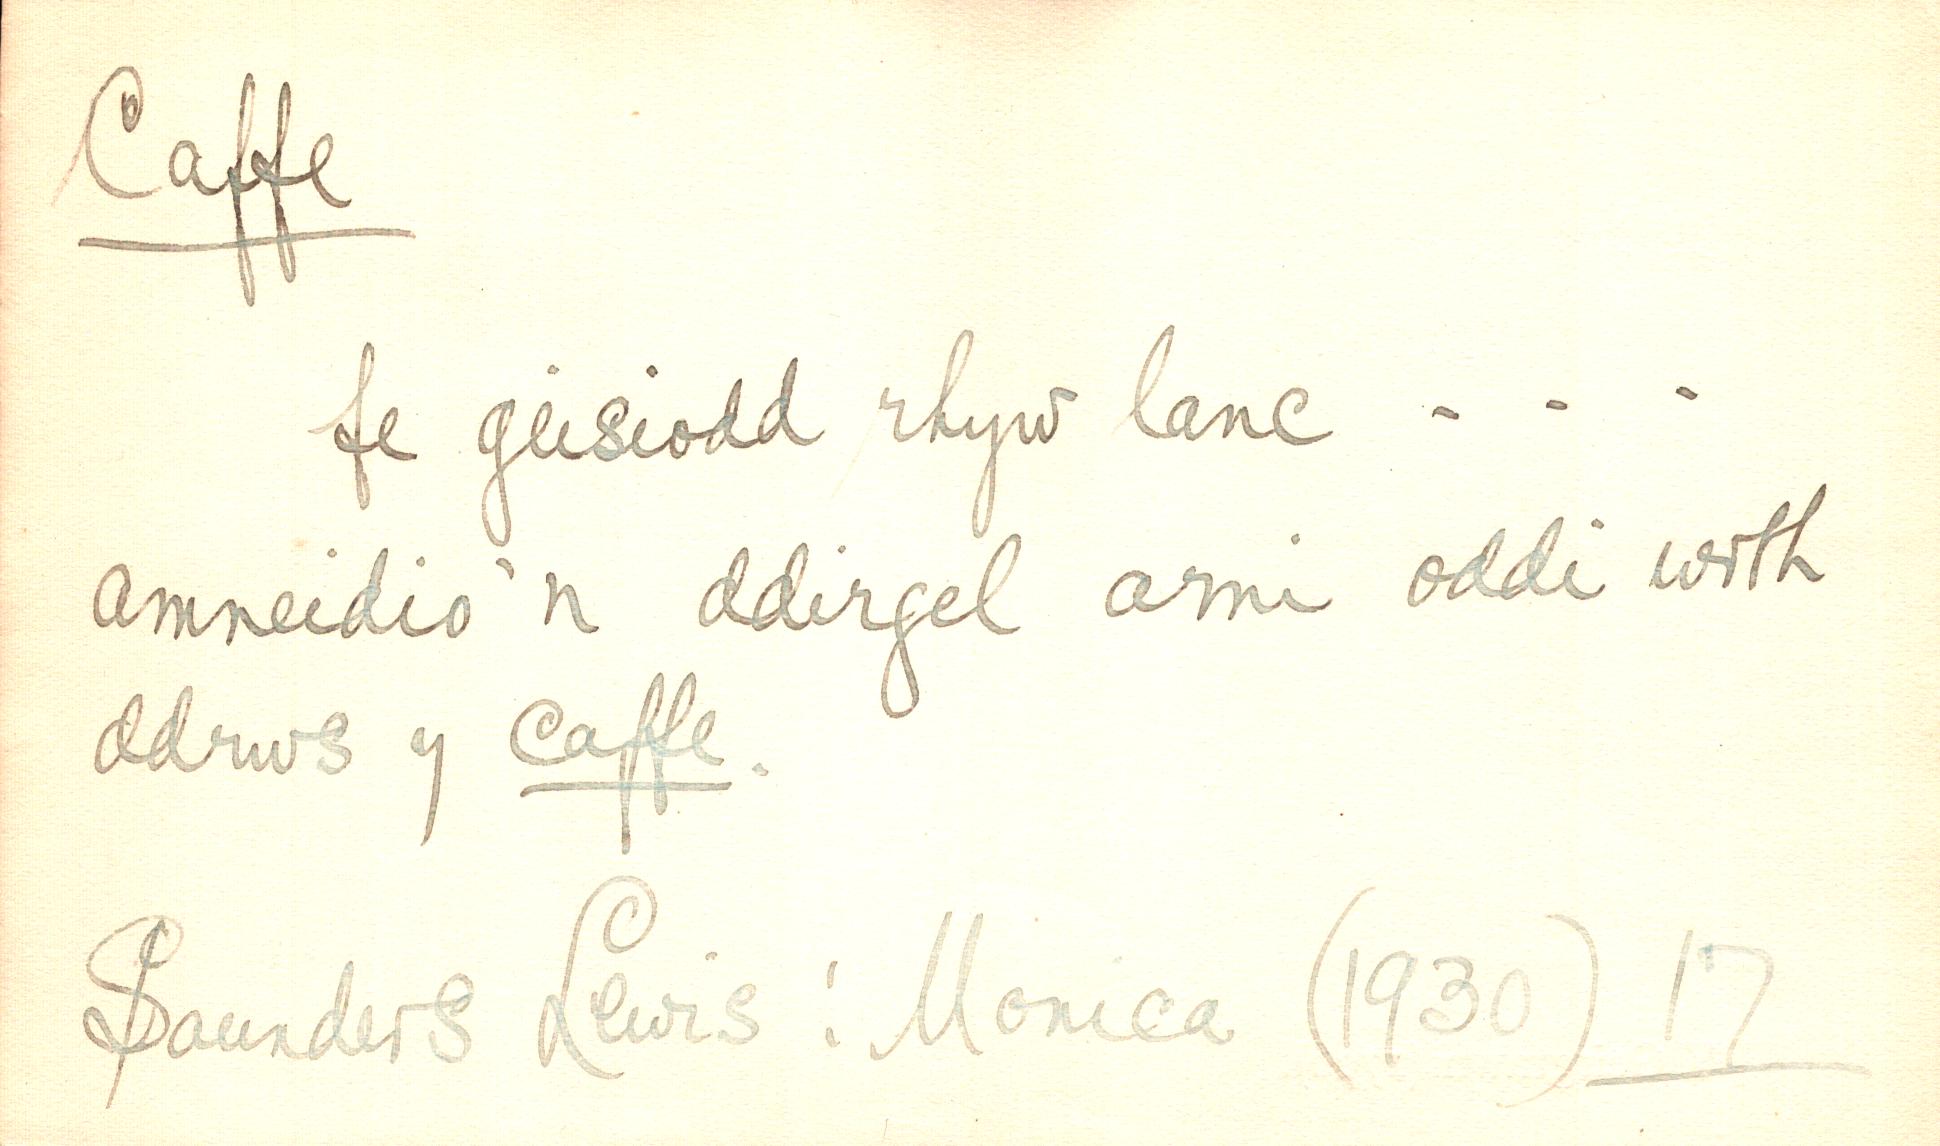 Caffe
fe geisiodd rhyw lanc - - -
amneidio'n ddirgel arni oddi wrth
ddrws y caffe.
Saunders Lewis : Monica (1930) 17